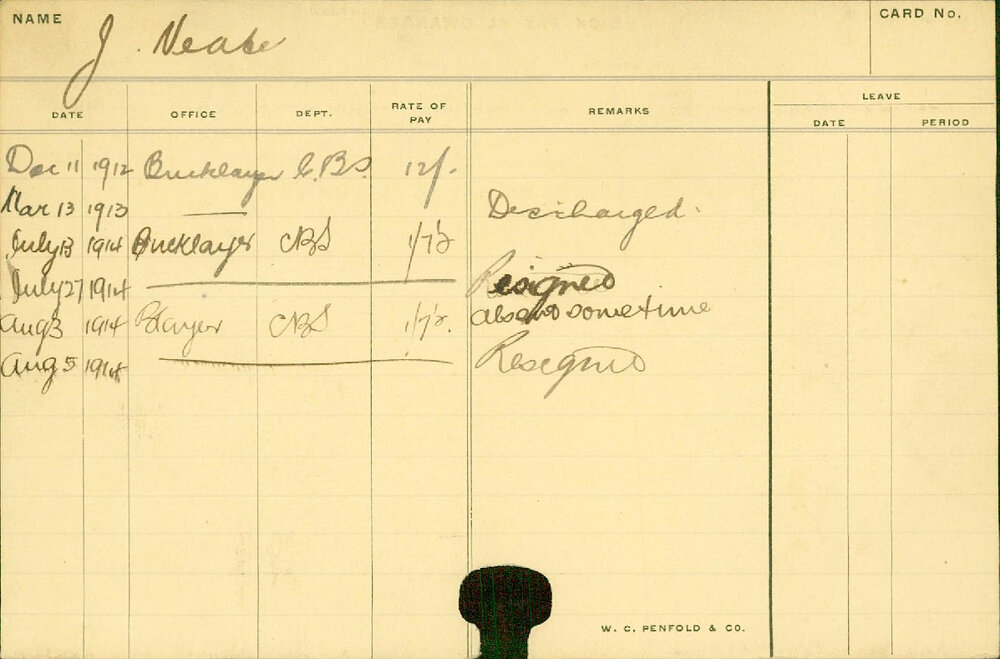 NAME J. Neale CARD No.
DATE OFFICE DEPT. RATE OF PAY REMARKS LEAVE
DATE PERIOD
Dec 11 1912 Bricklayer C.B.S. 12/-
Mar 13 1913 — Discharged.
July 13 1914 Bricklayer CBS 1/7½
July 27 1914 Resigned
Aug 3 1914 Blayer CBS 1/7½. absent sometime
Aug 5 1914 Resigned
W. C. PENFOLD & CO.